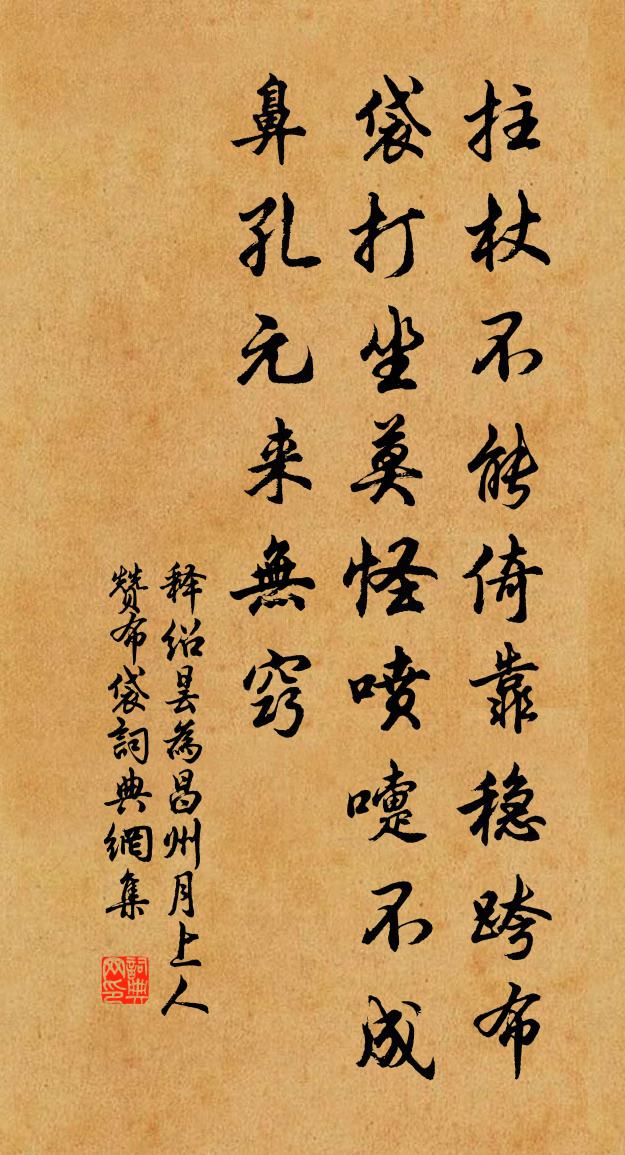 拄杖不能倚靠稳跨布
袋打坐莫怪喷嚏不成
鼻孔元来無窍
释绍昙為昌州月上人
赞布袋詞典網集
詞典網印